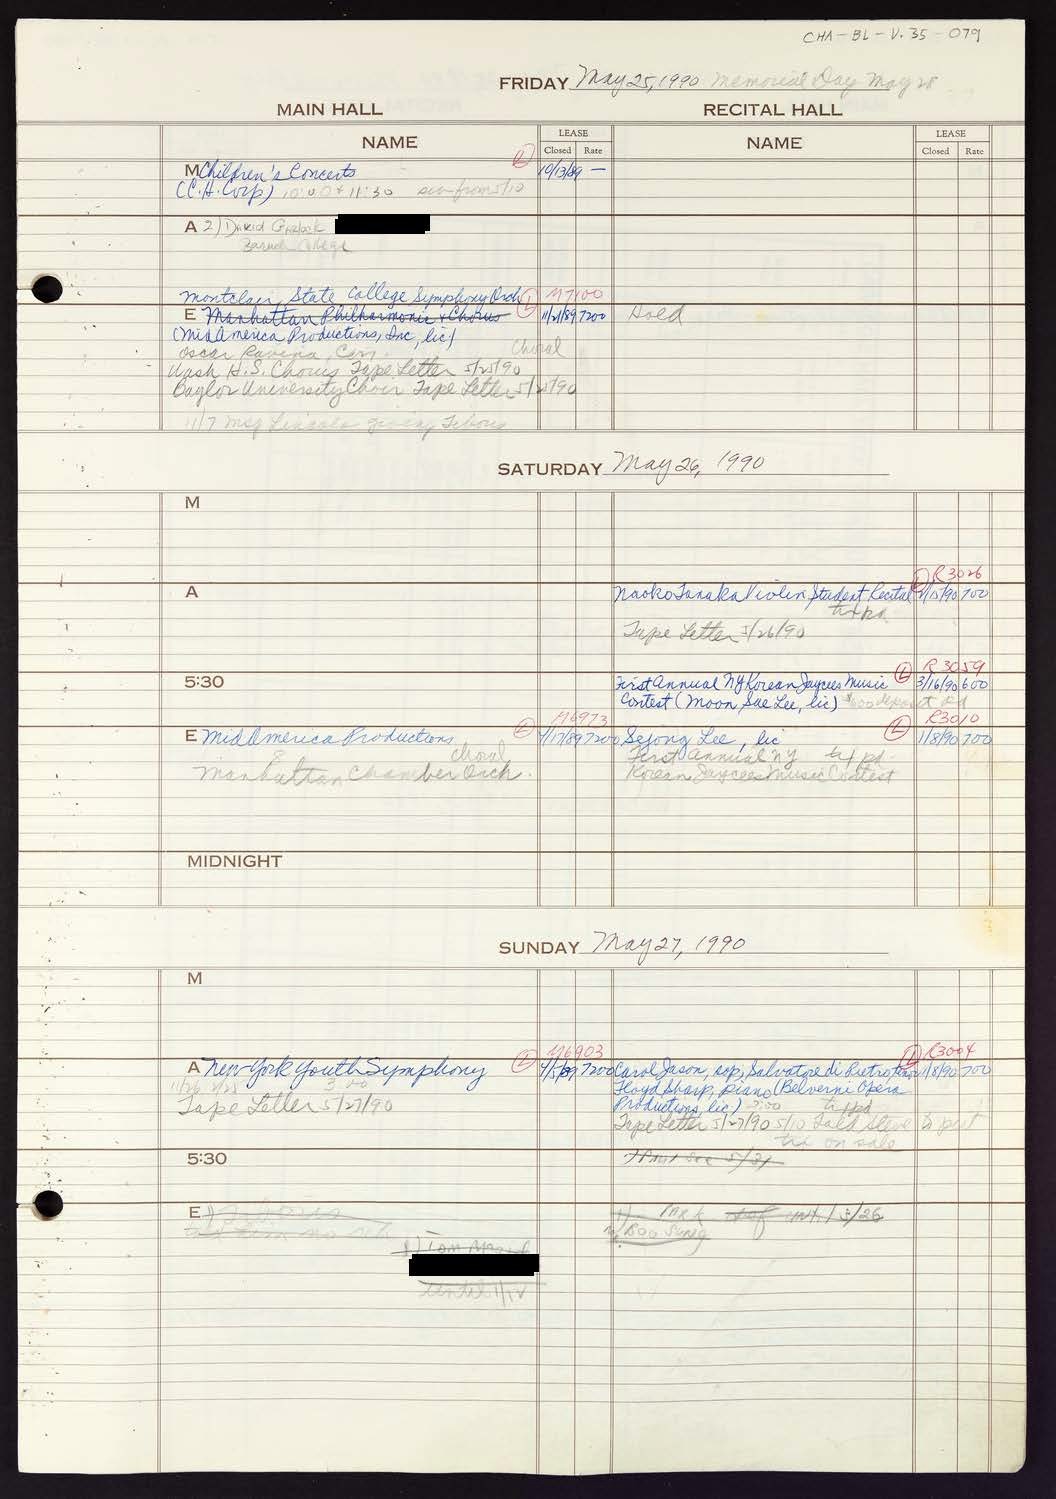 CHA-BL-V.35-079
FRIDAY May 25, 1990 Memorial Day May 28
MAIN HALL
RECITAL HALL
NAME
LEASE
Closed Rate
NAME
LEASE
Closed Rate
M Children's Concerts L 10/13/89 —
(C.H. Corp) 10:00 + 11:30
A 2) David
Baruch College
Montclair State College Symphony Orch L M7100
E Manhattan Philharmonic & Chorus 11/21/89 7200
Hold
(MidAmerica Productions, Inc, lic)
Oscar Ravina, Con. Choral
Wash H.S. Chorus Tape Letter 5/25/90
Baylor University Choir Tape Letter 5/25/90
11/7 msg
SATURDAY May 26, 1990
M
A
L R3026
Naoko Tanaka Violin Student Recital 700
tx pd
Tape Letter 5/26/90
5:30
L R3059
First Annual NY Korean Jaycees Music 3/16/90 600
Contest (Moon Sue Lee, lic) $600 deposit pd
E MidAmerica Productions L M6973 4/17/89 7200
choral
Manhattan Chamber Orch.
L R3010
Sejong Lee, lic 1/8/90 700
First Annual NY tx pd
Korean Jaycees Music Contest
MIDNIGHT
SUNDAY May 27, 1990
M
A New York Youth Symphony L M6903 4/5/89 7200
3:00
Tape Letter 5/27/90
L R3004
Carol Jason, sop, Salvatore di Pietro, tenor 1/8/90 700
Floyd Sharp, piano (Belverni Opera
Productions, lic) 2:00 tx pd
Tape Letter 5/27/90 5/10 Told Steve to put
tix on sale
5:30
E
3/26
1) Tom
until 1/12